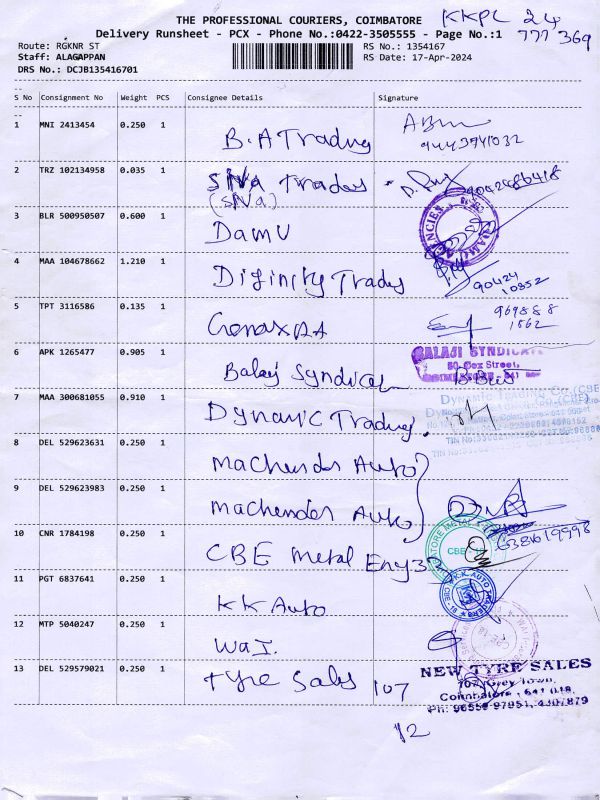 THE PROFESSIONAL COURIERS, COIMBATORE
KKPL 24
777 369
Delivery Runsheet - PCX - Phone No.:0422-3505555 - Page No.:1
Route: RGKNR ST
RS No.: 1354167
Staff: ALAGAPPAN
RS Date: 17-Apr-2024
DRS No.: DCJB135416701
S No Consignment No Weight PCS Consignee Details Signature
1 MNI 2413454 0.250 1 B.A Trading
2 TRZ 102134958 0.035 1 Siva Traders
(Siva)
3 BLR 500950507 0.600 1 Damu
DAMU AGENCIES
4 MAA 104678662 1.210 1 Divinity Trades 90424
10852
5 TPT 3116586 0.135 1 969888
1562
6 APK 1265477 0.905 1 Balaji Syndicate
BALAJI SYNDICATE
7 MAA 300681055 0.910 1 Dynamic Trading
Dynamic Trading Co (CBE)
8 DEL 529623631 0.250 1 Machender Auto
9 DEL 529623983 0.250 1 Machender Auto
10 CNR 1784198 0.250 1 CBE Metal Eny 32
11 PGT 6837641 0.250 1 KK Auto
K.K. AUTO
12 MTP 5040247 0.250 1 WAI.
13 DEL 529579021 0.250 1 Tyre Sales 107
NEW TYRE SALES
107, Grey Town,
Coimbatore - 641 018.
Ph: 96559 97951, 4307879
12